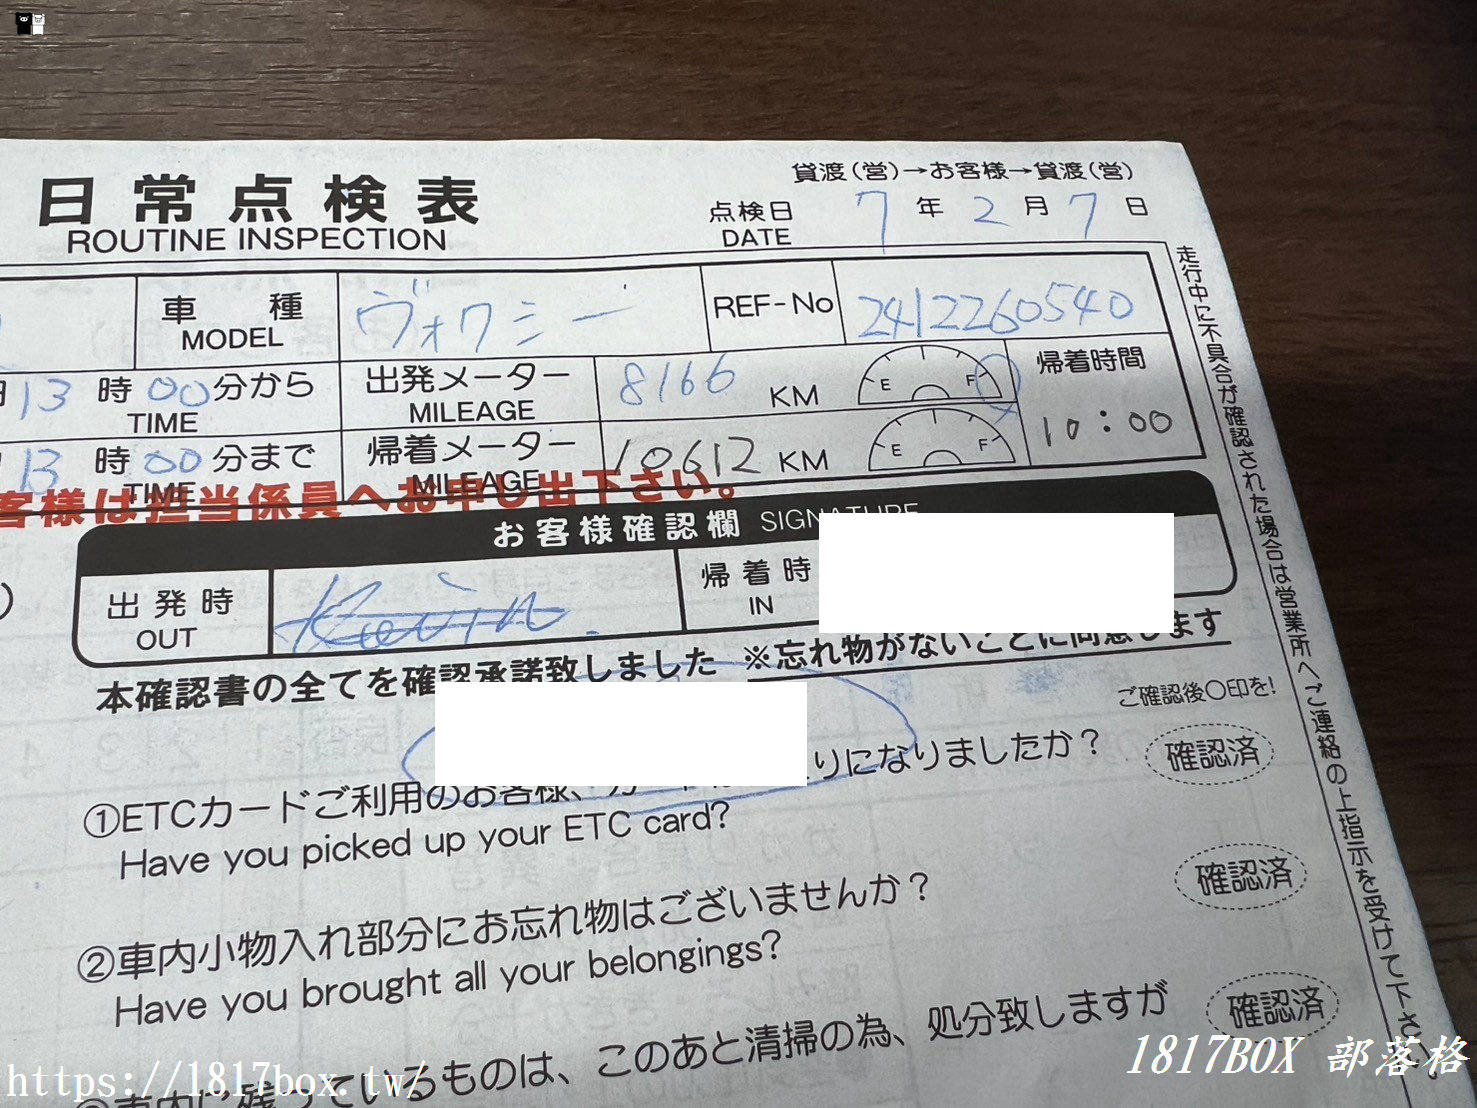 貸渡(営)→お客様→貸渡(営)
日常点検表
ROUTINE INSPECTION
点検日 7年2月7日
DATE
車種 ヴォクシー REF-No 2412260540
MODEL
13時00分から 出発メーター 8166 KM E F 帰着時間
TIME MILEAGE
13時00分まで 帰着メーター 10612 KM E F 10:00
TIME MILEAGE
客様は担当係員へお申し出下さい。
お客様確認欄 SIGNATURE
出発時 Kevin 帰着時
OUT IN
本確認書の全てを確認承諾致しました ※忘れ物がないことに同意します
ご確認後〇印を!
①ETCカードご利用のお客様、 りになりましたか？ 確認済
Have you picked up your ETC card?
②車内小物入れ部分にお忘れ物はございませんか？ 確認済
Have you brought all your belongings?
車内に残っているものは、このあと清掃の為、処分致しますが 確認済
走行中に不具合が確認された場合は営業所へご連絡の上指示を受けて下さい。
https://1817box.tw/
1817BOX 部落格